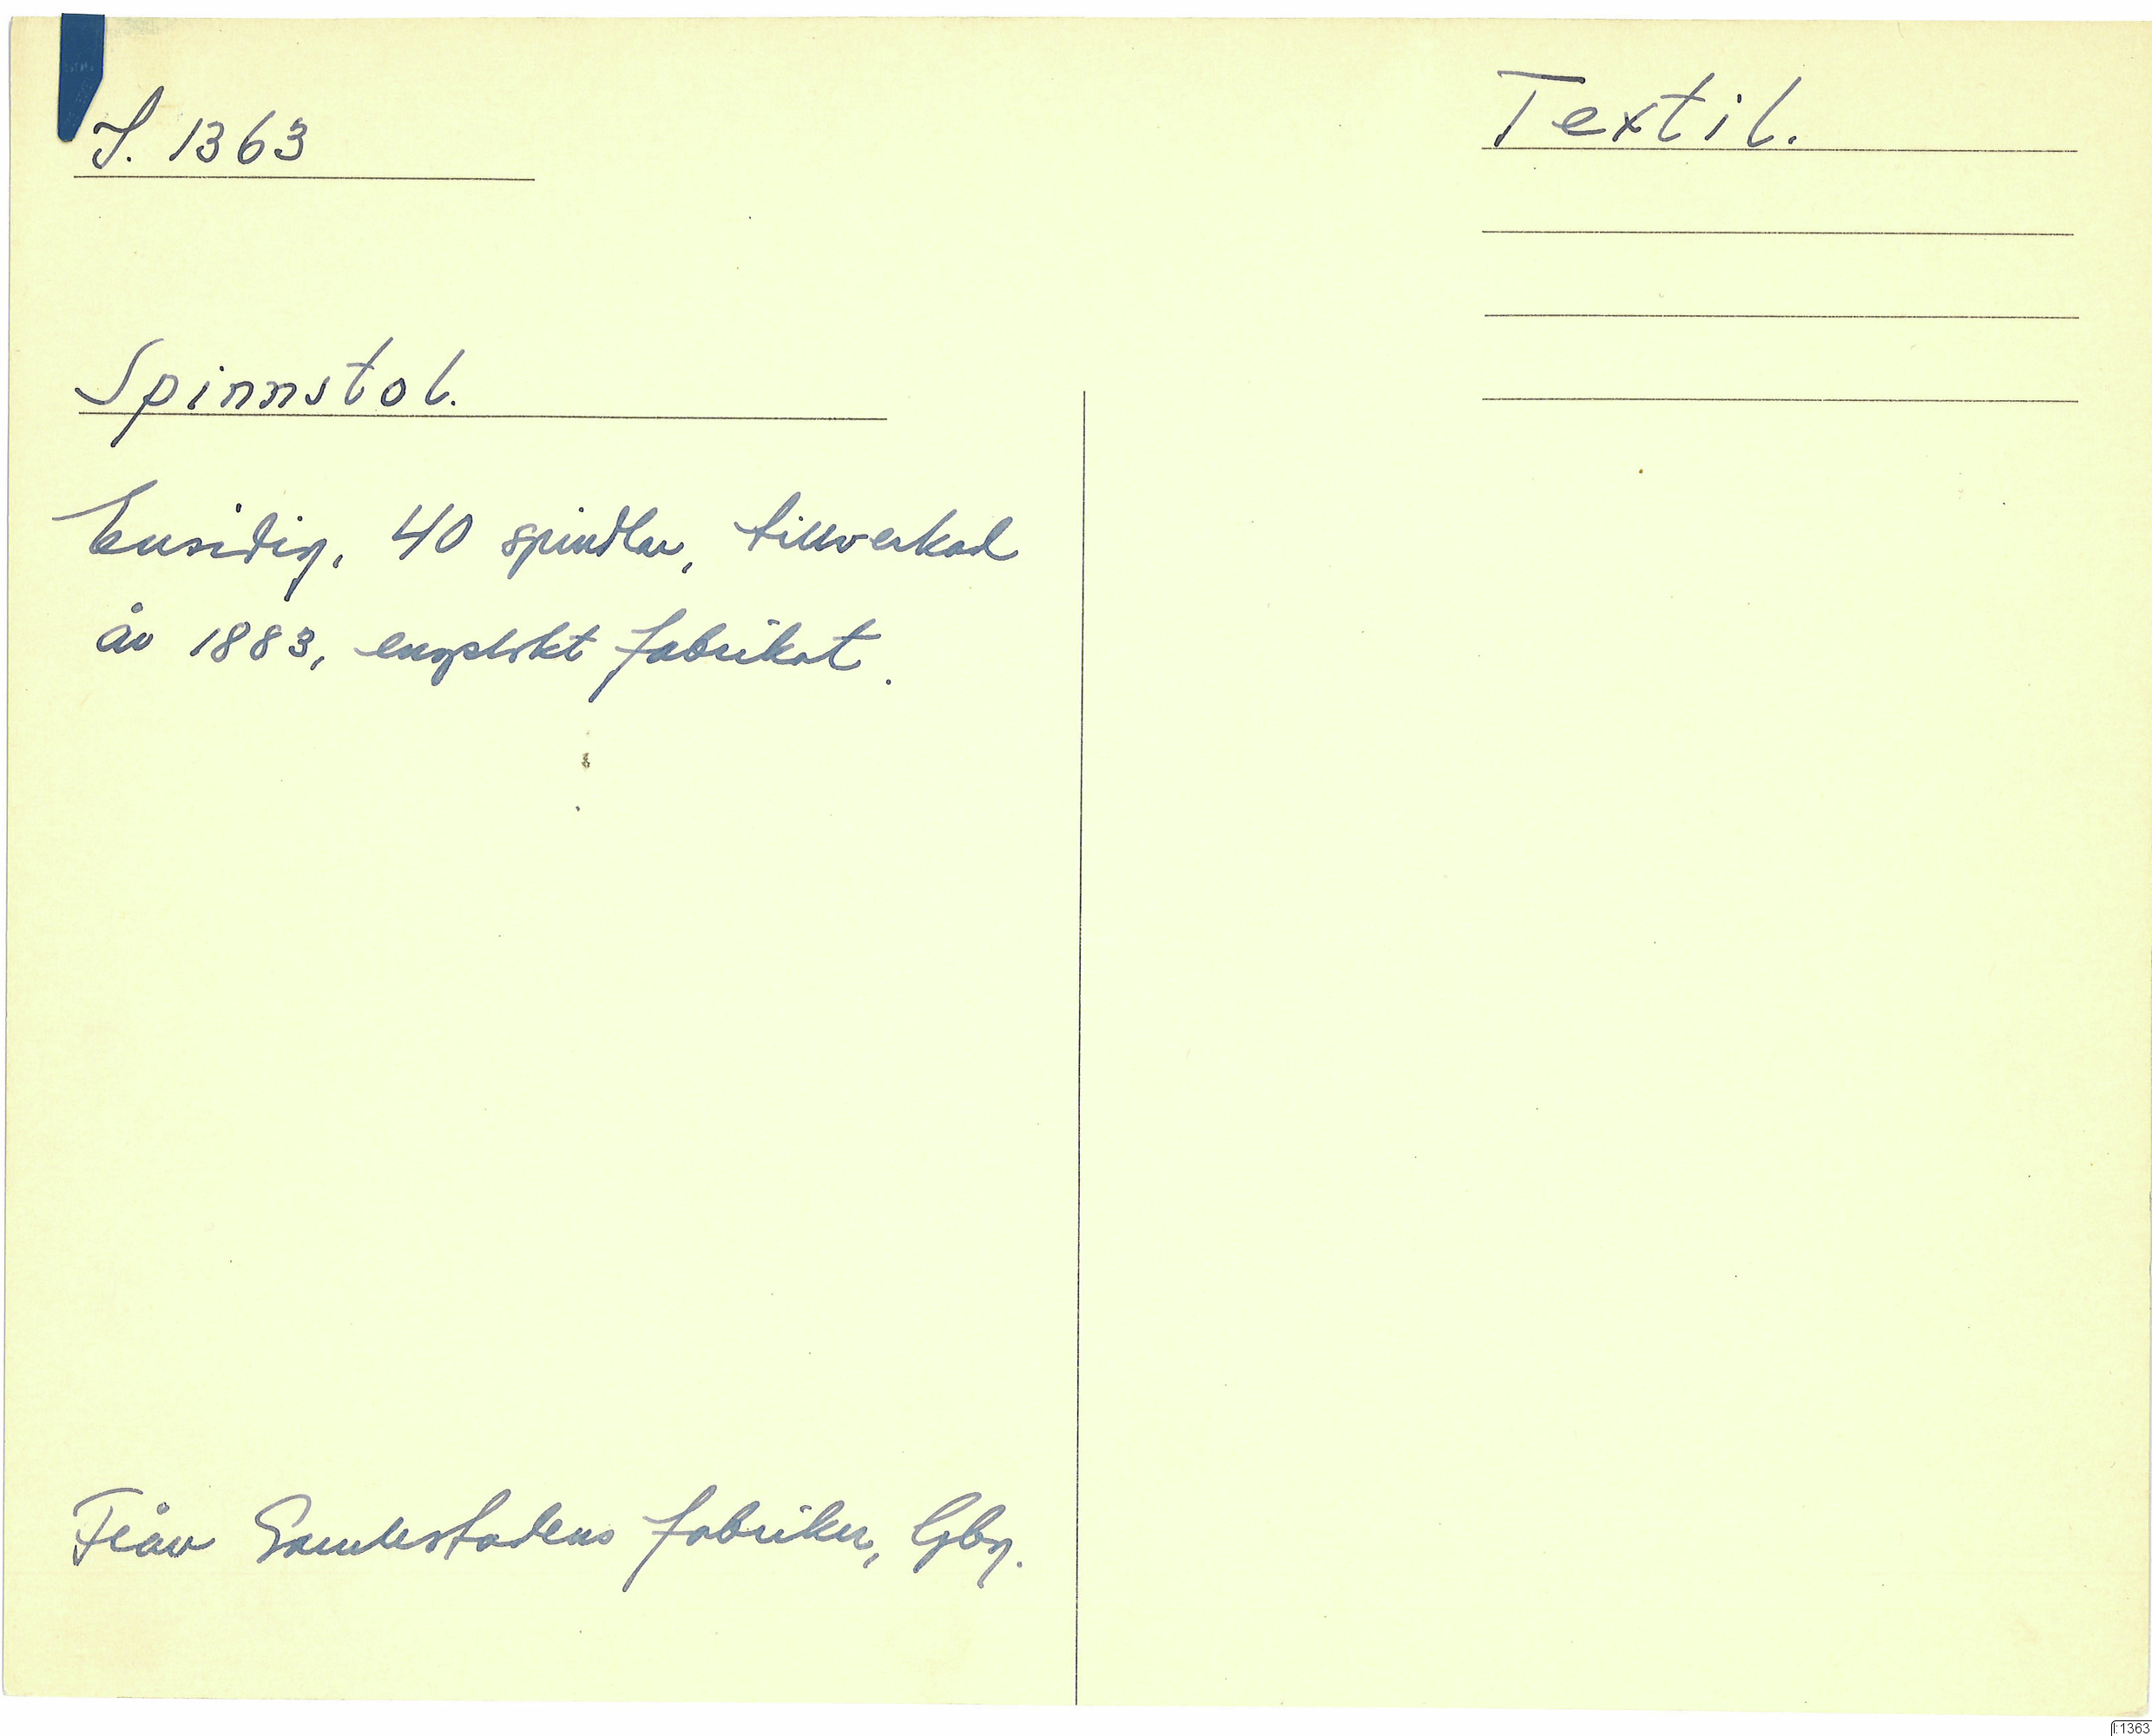 I. 1363
Textil.
Spinnstol.
Ensidig, 40 spindlar, tillverkad
år 1883, engelskt fabrikat.
Från Gamlestadens fabriker, Gbg.
I:1363